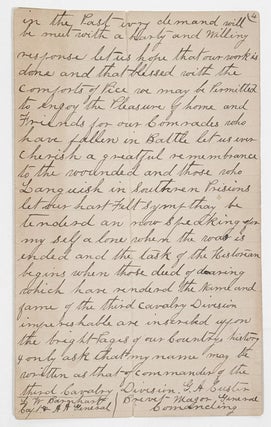 4
in the Past ivry demand will
be meet with a harty and Willing
response let us hope that our work is
done and that blessed with the
Comforts of Pice we may be Permitted
to Enjoy the Pleasure of home and
Friends for our Comrades who
have fallen in Battle let us ever
Cherish a greatful remembrance
to the wounded and those who
Languish in Southren Prisins
let our hart Felt Sympthay be
tenderd an now Speaking for
my self a lone when the war is
ended and the task of the Historian
begins when those died of dearing
which have renderd the Name and
fame of the third Cavalry Division
imperishable are inserted upon
the bright Pages of our Countrys history
I only ask that my name may be
written as that of Commander of the
third Cavalry Division. G. A. Custer
Brevet Major General
Comanding
Capt & A A General